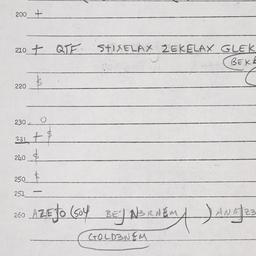 200 +
210 + QTF STIXELAX ZEKELAX GLEK
BEK
220 $
230 O
231 + $
240 $
250 $
252 –
260 AZEJO (SOY BEJ N3RNEM ) AN
GOLD3NEM